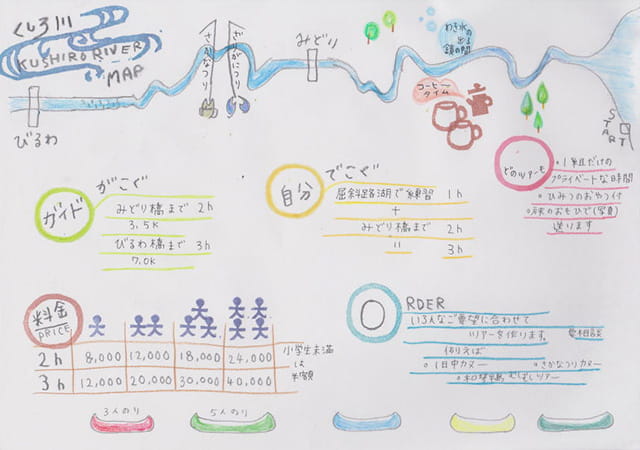 くしろ川
KUSHIRO RIVER
MAP
びるわ
さかなつり
ざりがにつり
みどり
わき水の
出る
鏡の間
コーヒー
タイム
START
ガイド
がこぐ
みどり橋まで 2h
3.5K
びるわ橋まで 3h
7.0K
自分
でこぐ
屈斜路湖で練習 1h
+
みどり橋まで 2h
〃 3h
どのツアーも
・1組だけの
プライベートな時間
・ひみつのおやつ付
・旅のおもひで(写真)
送ります
料金
PRICE
2h 8,000 12,000 18,000 24,000
3h 12,000 20,000 30,000 40,000
小学生未満
は
半額
ORDER
いろんなご要望に合わせて
ツアーを作ります。 要相談
例えば
・1日中カヌー ・さかなつりカヌー
3人のり
5人のり